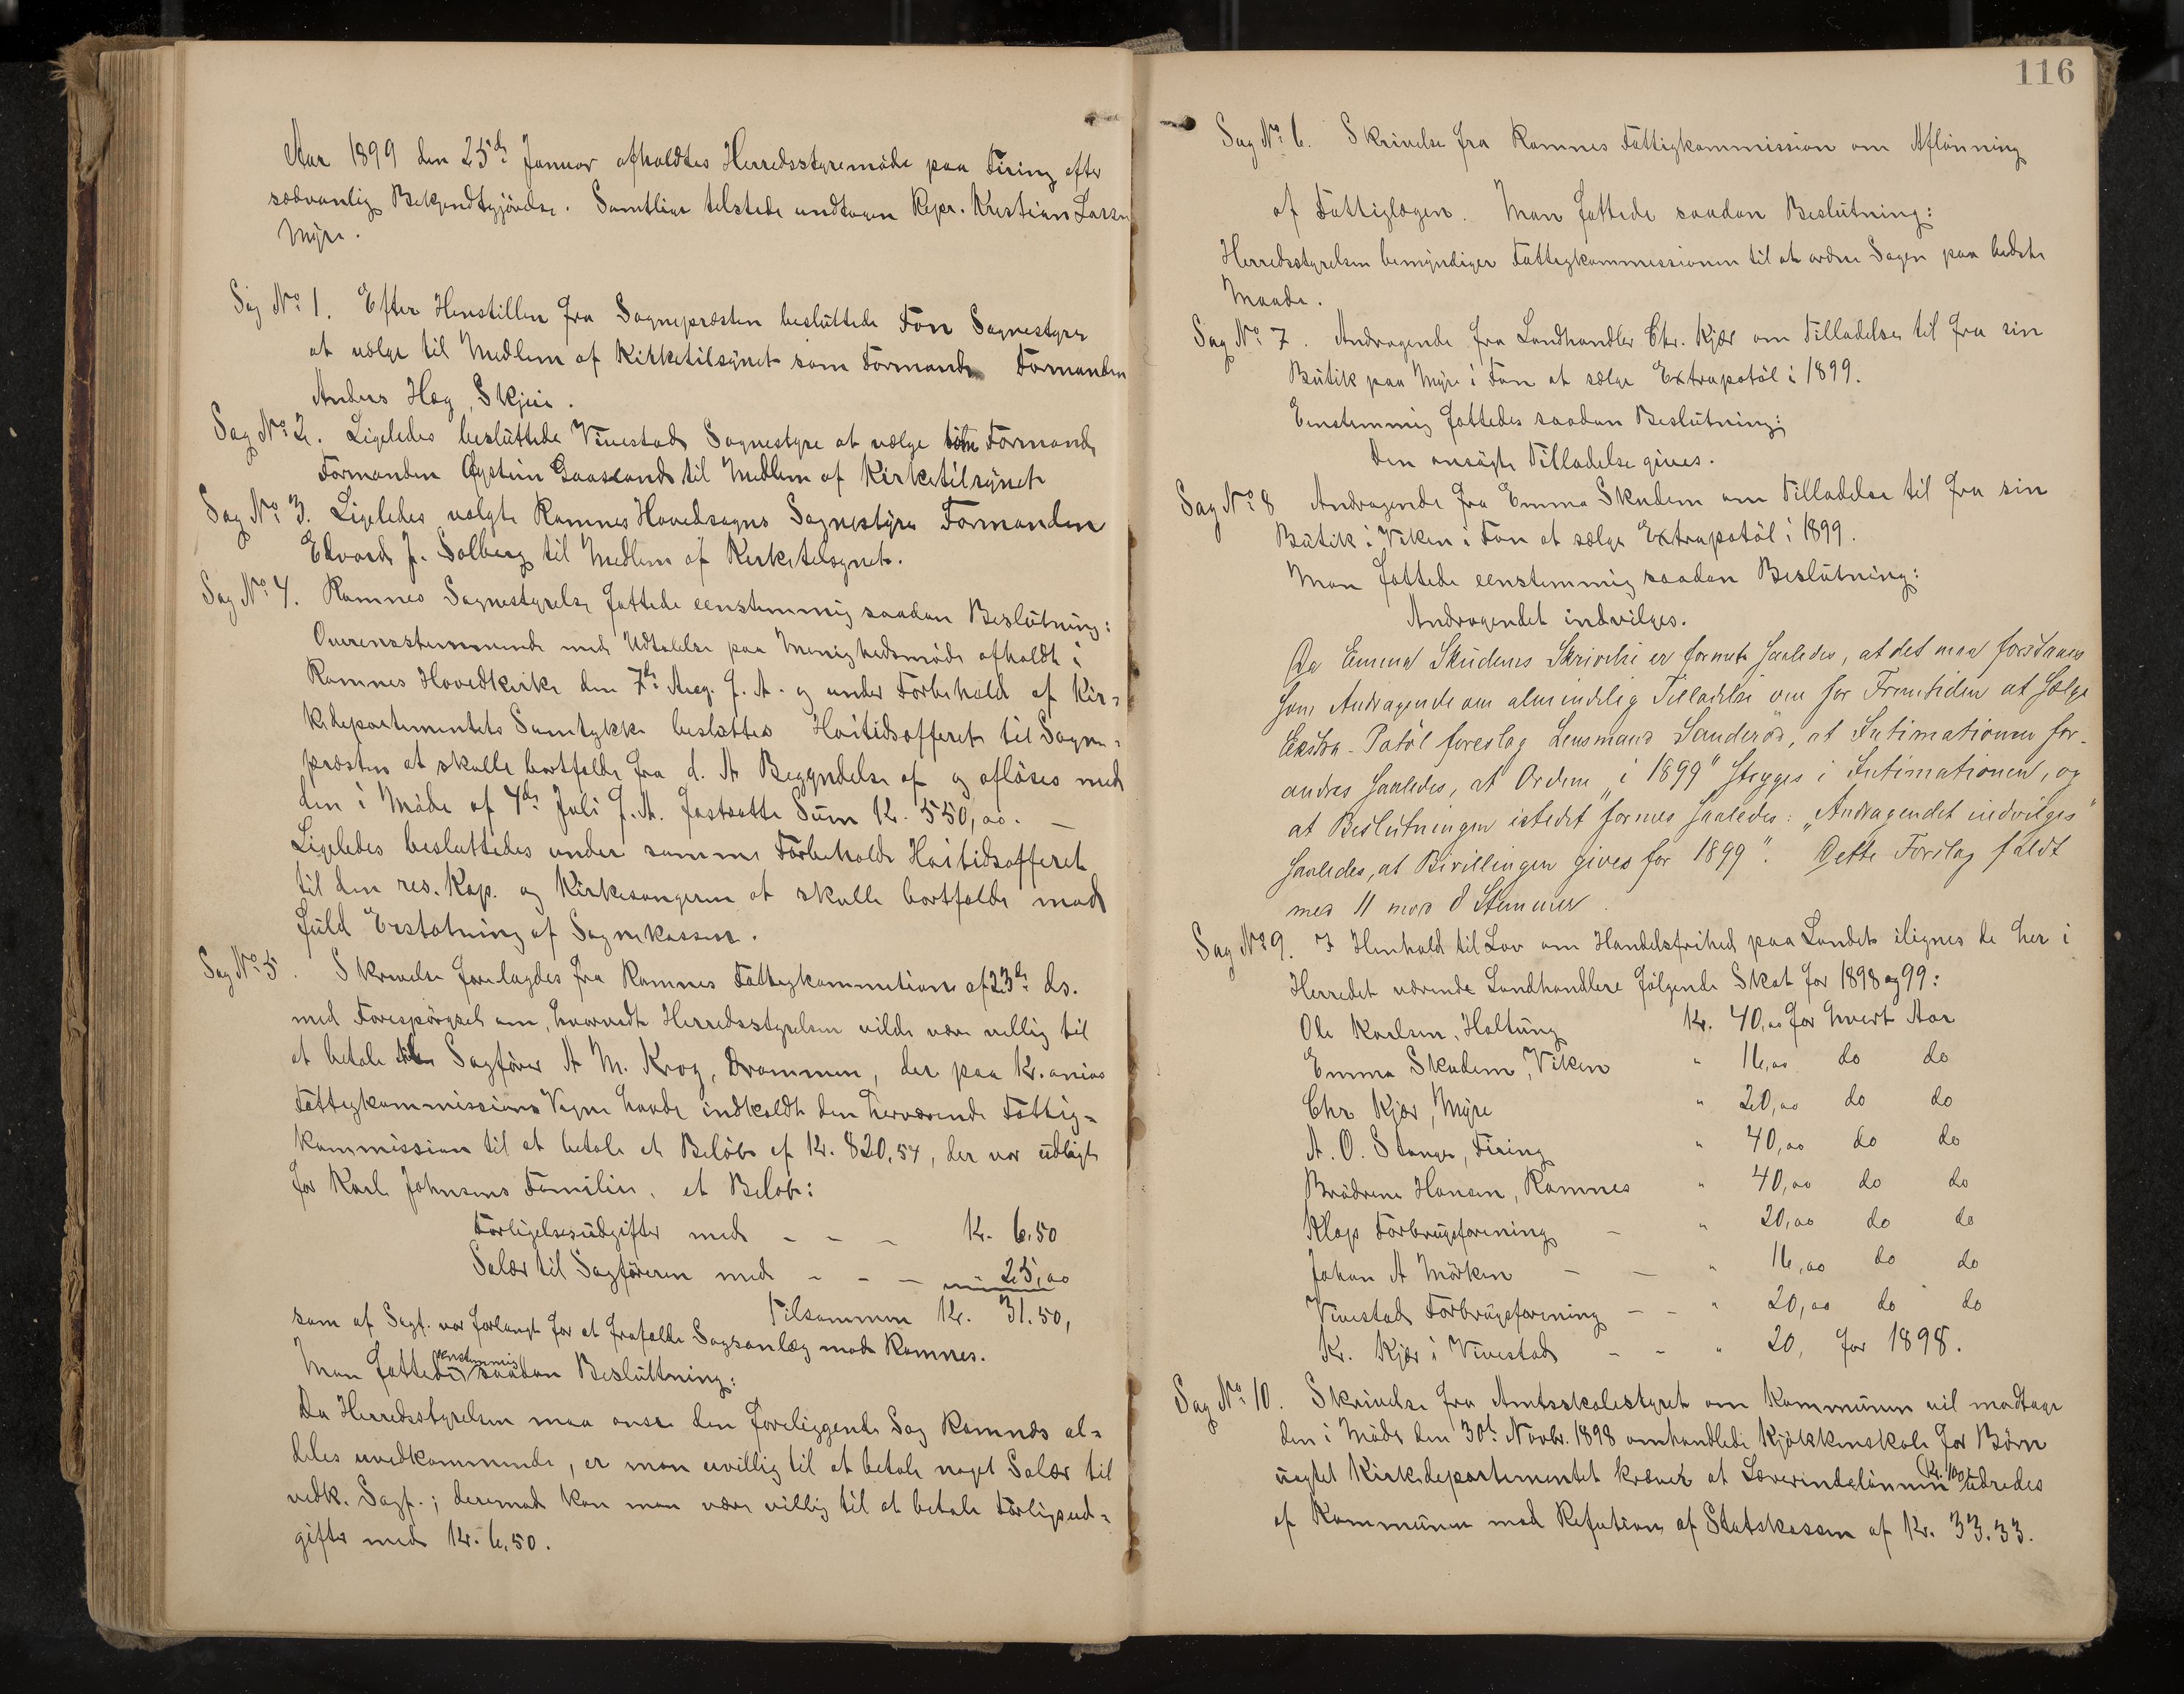 Aar 1899 den 25de Januar afholdtes Herredsstyremøde paa Firing efter
sædvanlig Bekjendtgjørelse. Samtlige tilstede undtagen Repr. Kristian Larsen
Myre.
Sag No 1. Efter Henstillen fra Sognepræsten besluttede Fon Sognestyre
at vælge til Medlem af Kirketilsynet som Formand Formanden
Anders Hæg, Skjui.
Sag No 2. Ligeledes besluttede Vivestad Sognestyre at vælge Formand
Formanden Øystein Gaasland til Medlem af Kirketilsynet
Sag No 3. Ligeledes valgte Ramnes Hovedsogns Sognestyre Formanden
Edvard J. Solberg til Medlem af Kirketilsynet.
Sag No 4. Ramnes Sognestyrelse fattede eenstemmig saadan Beslutning:
Overensstemmende med Udtalelse paa Menighedsmøde afholdt i
Ramnes Hovedkirke den 7de Aug. f. A. og under Forbehold af Kir-
kedepartementets Samtykke besluttes Høitidsofferet til Sogne-
præsten at skulle bortfalde fra d. A Begyndelse af og afløses med
den i Møde af 4de Juli f. A. fastsatte Sum Kr. 550,00. —
Ligeledes besluttedes under samme Forbehold Høitidsofferet
til den res. Kap. og Kirkesangeren at skulle bortfalde mod
fuld Erstatning af Sognekassen.
Sag No 5. Skrivelse forelagdes fra Ramnes Fattigkommition af 23de ds.
med Forespørgsel om, hvorvidt Herredsstyrelsen vilde være villig til
at betale til Sagfører A M. Krog, Drammen, der paa Kr.anias
Fattigkommissions Vegne havde indkaldt den herværende Fattig-
kommission til at betale et Beløb af Kr. 820,54, der var udlagt
for Karl Johnsens Familie, et Beløb:
Forligelsesudgifter med - - - Kr. 6.50
Salær til Sagføreren med - - - " 25,00
Tilsammen Kr. 31.50,
som af Sagf. var forlangt for at frafalde Sagsanlæg mod Ramnes.
Man fattede eenstemmig saadan Besluttning:
Da Herredsstyrelsen maa anse den foreliggende Sag Ramnes al-
deles uvedkommende, er man uvillig til at betale noget Salær til
vedk. Sagf.; derimod kan man være villig til at betale Forligsud-
gifter med Kr. 6,50.
116
Sag No 6. Skrivelse fra Ramnes Fattigkommission om Aflønning
af Fattiglægen. Man fattede saadan Beslutning:
Herredsstyrelsen bemyndiger Fattigkommissionen til at ordne Sagen paa bedste
Maade.
Sag No 7. Andragende fra Landhandler Chr. Kjær om Tilladelse til fra sin
Butik paa Myre i Fon at sælge Extrapotøl i 1899.
Eenstemmig fattedes saadan Beslutning:
Den ansøgte Tilladelse gives.
Sag No 8 Andragende fra Emma Skudem om Tilladelse til fra sin
Butik i Viken i Fon at sælge Extrapotøl i 1899.
Man fattede eenstemmig saadan Beslutning:
Andragendet indvilges.
Da Emma Skudems Skrivelse er formet saaledes, at det maa forstaaes
som Andragende om almindelig Tilladelse om for Fremtiden at sælge
Exstra-Potøl foreslog Lensmand Sanderød, at Intimationen for-
andres saaledes, at Ordene „i 1899" stryges i Intimationen, og
at Beslutningen istedet formes saaledes: „Andragendet indvilges"
saaledes, at Bevillingen gives for 1899". Dette Forslag faldt
med 11 mod 8 Stemmer.
Sag No 9. I Henhold til Lov om Handelsfrihed paa Landet ilignes de her i
Herredet værende Landhandlere følgende Skat for 1898 og 99:
Ole Karlsen, Holtung Kr. 40,00 for hvert Aar
Emma Skudem, Viken " 16,00 do do
Chr Kjær, Myre " 20,00 do do
A. O. Stange, Firing " 40,00 do do
Brødrene Hansen, Ramnes " 40,00 do do
Klop Forbrugsforening - " 20,00 do do
Johan A Mørken - - " 16,00 do do
Vivestad Forbrugsforening - - " 20,00 do do
Kr. Kjær i Vivestad - - " 20, for 1898.
Sag No 10. Skrivelse fra Amtsskolestyret om Kommunen vil modtage
den i Møde den 30te Novbr. 1898 omhandlede Kjøkkenskole for Børn
uagtet Kirkedepartementet kræver at Lærerindelønnen (Kr. 100) udredes
af Kommunen mod Refution af Statskassen af Kr. 33.33.